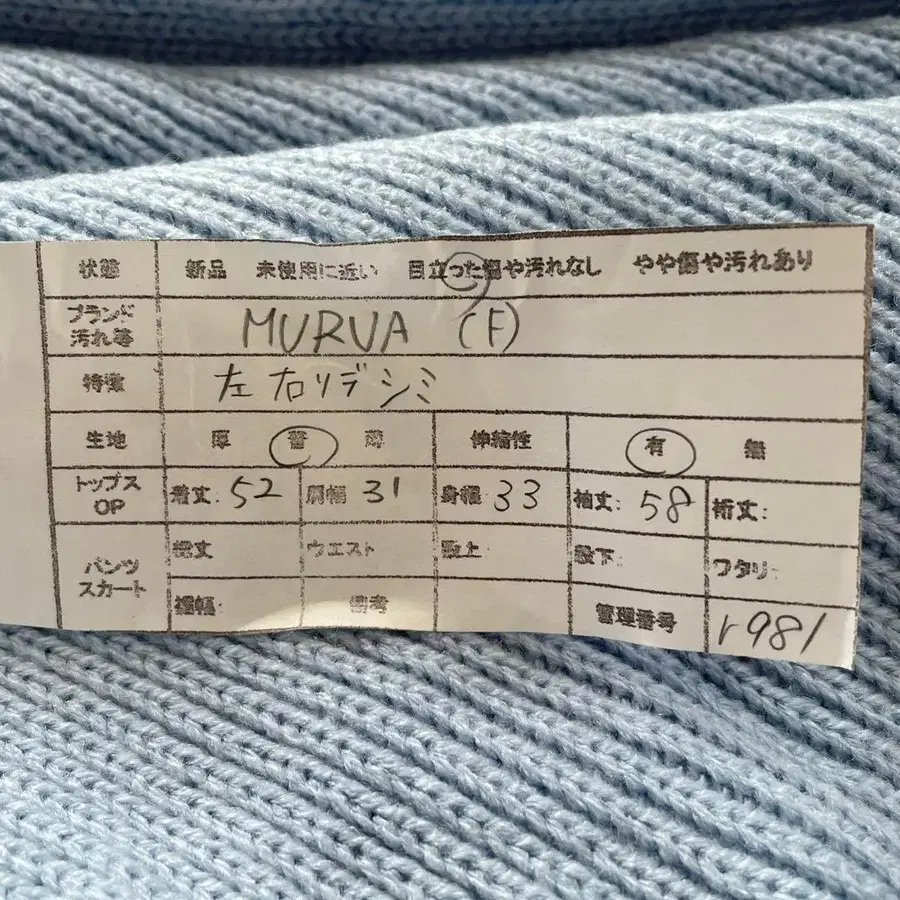 状態 新品 未使用に近い 目立った傷や汚れなし やや傷や汚れあり
ブランド
汚れ等 MURUA (F)
特徴 左右ソデシミ
生地 厚 普 薄 伸縮性 有 無
トップス
OP 着丈: 52 肩幅 31 身幅 33 袖丈: 58 裄丈:
パンツ
スカート 総丈 ウエスト 股上: 股下: ワタリ:
裾幅: 備考 管理番号 r981